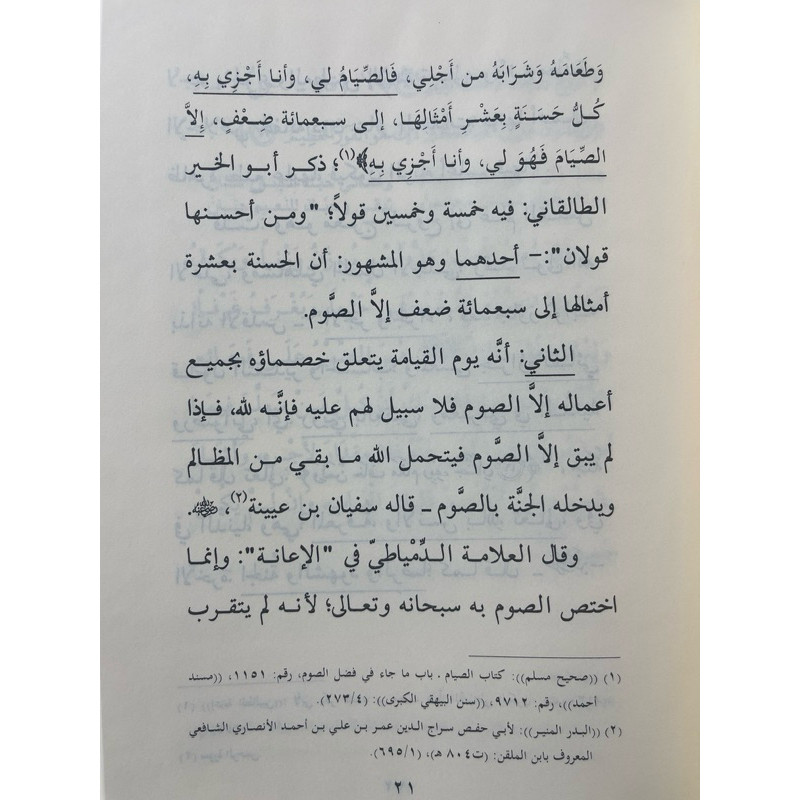 وَطَعَامَهُ وَشَرَابَهُ من أَجْلِي، فَالصِّيَامُ لي، وأنا أَجْزِي بِهِ،
كُلُّ حَسَنَةٍ بِعَشْرِ أَمْثَالِهَا، إلى سبعمائة ضِعْفٍ، إِلاَّ
الصِّيَامَ فَهُوَ لي، وأنا أَجْزِي بِهِ﴾(١)؛ ذكر أبو الخير
الطالقاني: فيه خمسة وخمسين قولاً؛ "ومن أحسنها
قولان":- أحدهما وهو المشهور: أن الحسنة بعشرة
أمثالها إلى سبعمائة ضعف إلاَّ الصَّوم.
الثاني: أنَّه يوم القيامة يتعلق خصماؤه بجميع
أعماله إلاَّ الصوم فلا سبيل لهم عليه فإنَّه لله، فـإذا
لم يبق إلاَّ الصَّوم فيتحمل الله ما بقي من المظالم
ويدخله الجنَّة بالصَّوم ـ قاله سفيان بن عيينة(٢)، ﷺ.
وقال العلامة الدِّمْياطيّ في "الإعانـة": وإنمـا
اختص الصوم به سبحانه وتعالى؛ لأنـه لم يتقـرب
(١) ((صحيح مسلم)): كتاب الصيام ـ باب ما جاء في فضل الصوم، رقم: ١١٥١، ((مسند
أحمد))، رقم: ٩٧١٢، ((سنن البيهقي الكبرى)): (٢٧٣/٤).
(٢) ((البدر المنير)): لأبي حفص سراج الدين عمر بن علي بن أحمد الأنصاري الشافعي
المعروف بابن الملقن: (ت٨٠٤ هـ)، (٦٩٥/١).
٢١